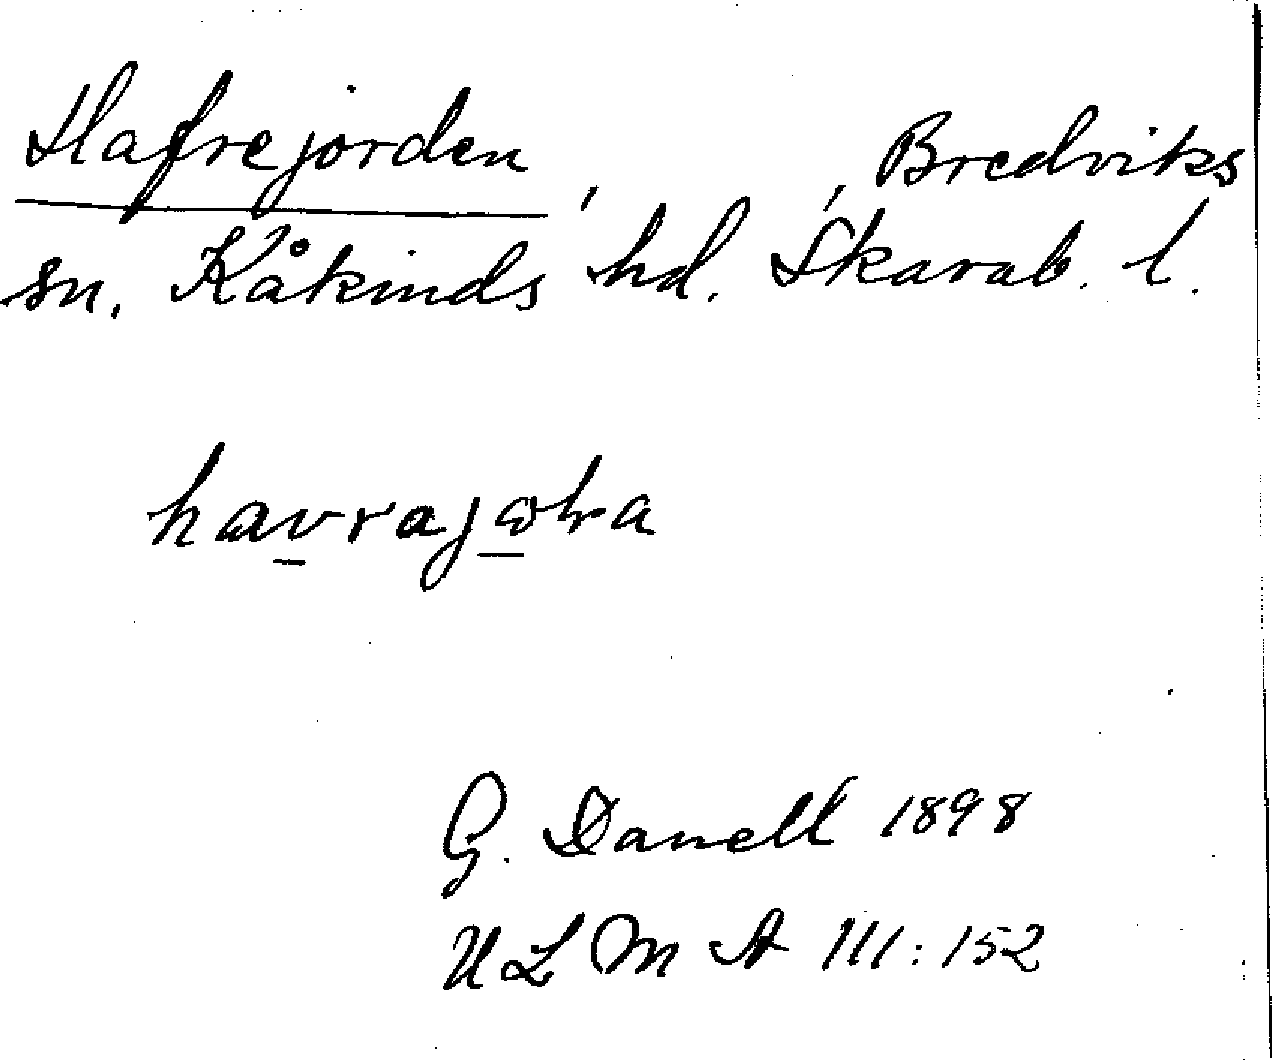 Hafrejorden, , Bredviks
sn. Kåkinds hd. Skarab. l.
G. Danell 1898
ULMA 111:152